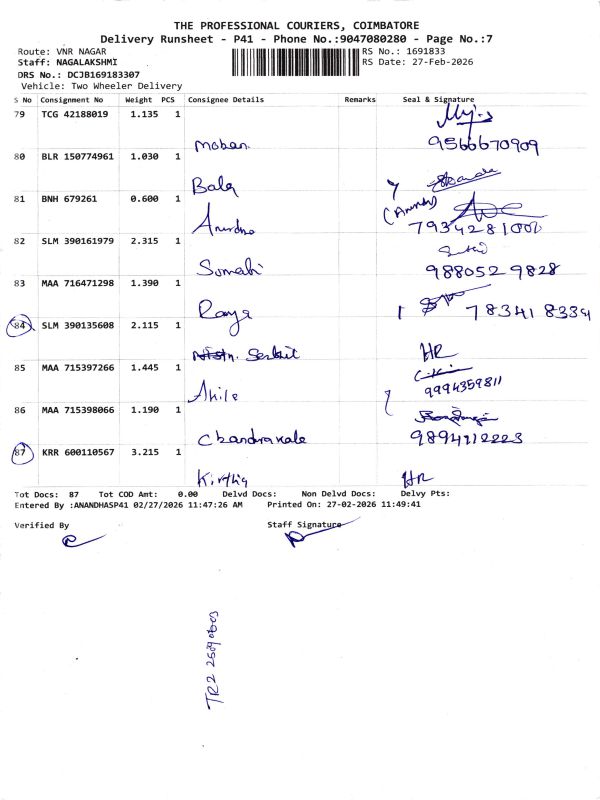 THE PROFESSIONAL COURIERS, COIMBATORE
Delivery Runsheet - P41 - Phone No.:9047080280 - Page No.:7
Route: VNR NAGAR
RS No.: 1691833
Staff: NAGALAKSHMI
RS Date: 27-Feb-2026
DRS No.: DCJB169183307
Vehicle: Two Wheeler Delivery
S No Consignment No Weight PCS Consignee Details Remarks Seal & Signature
79 TCG 42188019 1.135 1
Mohan 9566670909
80 BLR 150774961 1.030 1
Bala
81 BNH 679261 0.600 1
82 SLM 390161979 2.315 1
9880529828
83 MAA 716471298 1.390 1
84 SLM 390135608 2.115 1
HR
85 MAA 715397266 1.445 1
Akila 9994359811
86 MAA 715398066 1.190 1
Chandrakala
87 KRR 600110567 3.215 1
HR
Tot Docs: 87 Tot COD Amt: 0.00 Delvd Docs: Non Delvd Docs: Delvy Pts:
Entered By :ANANDHASP41 02/27/2026 11:47:26 AM Printed On: 27-02-2026 11:49:41
Verified By Staff Signature